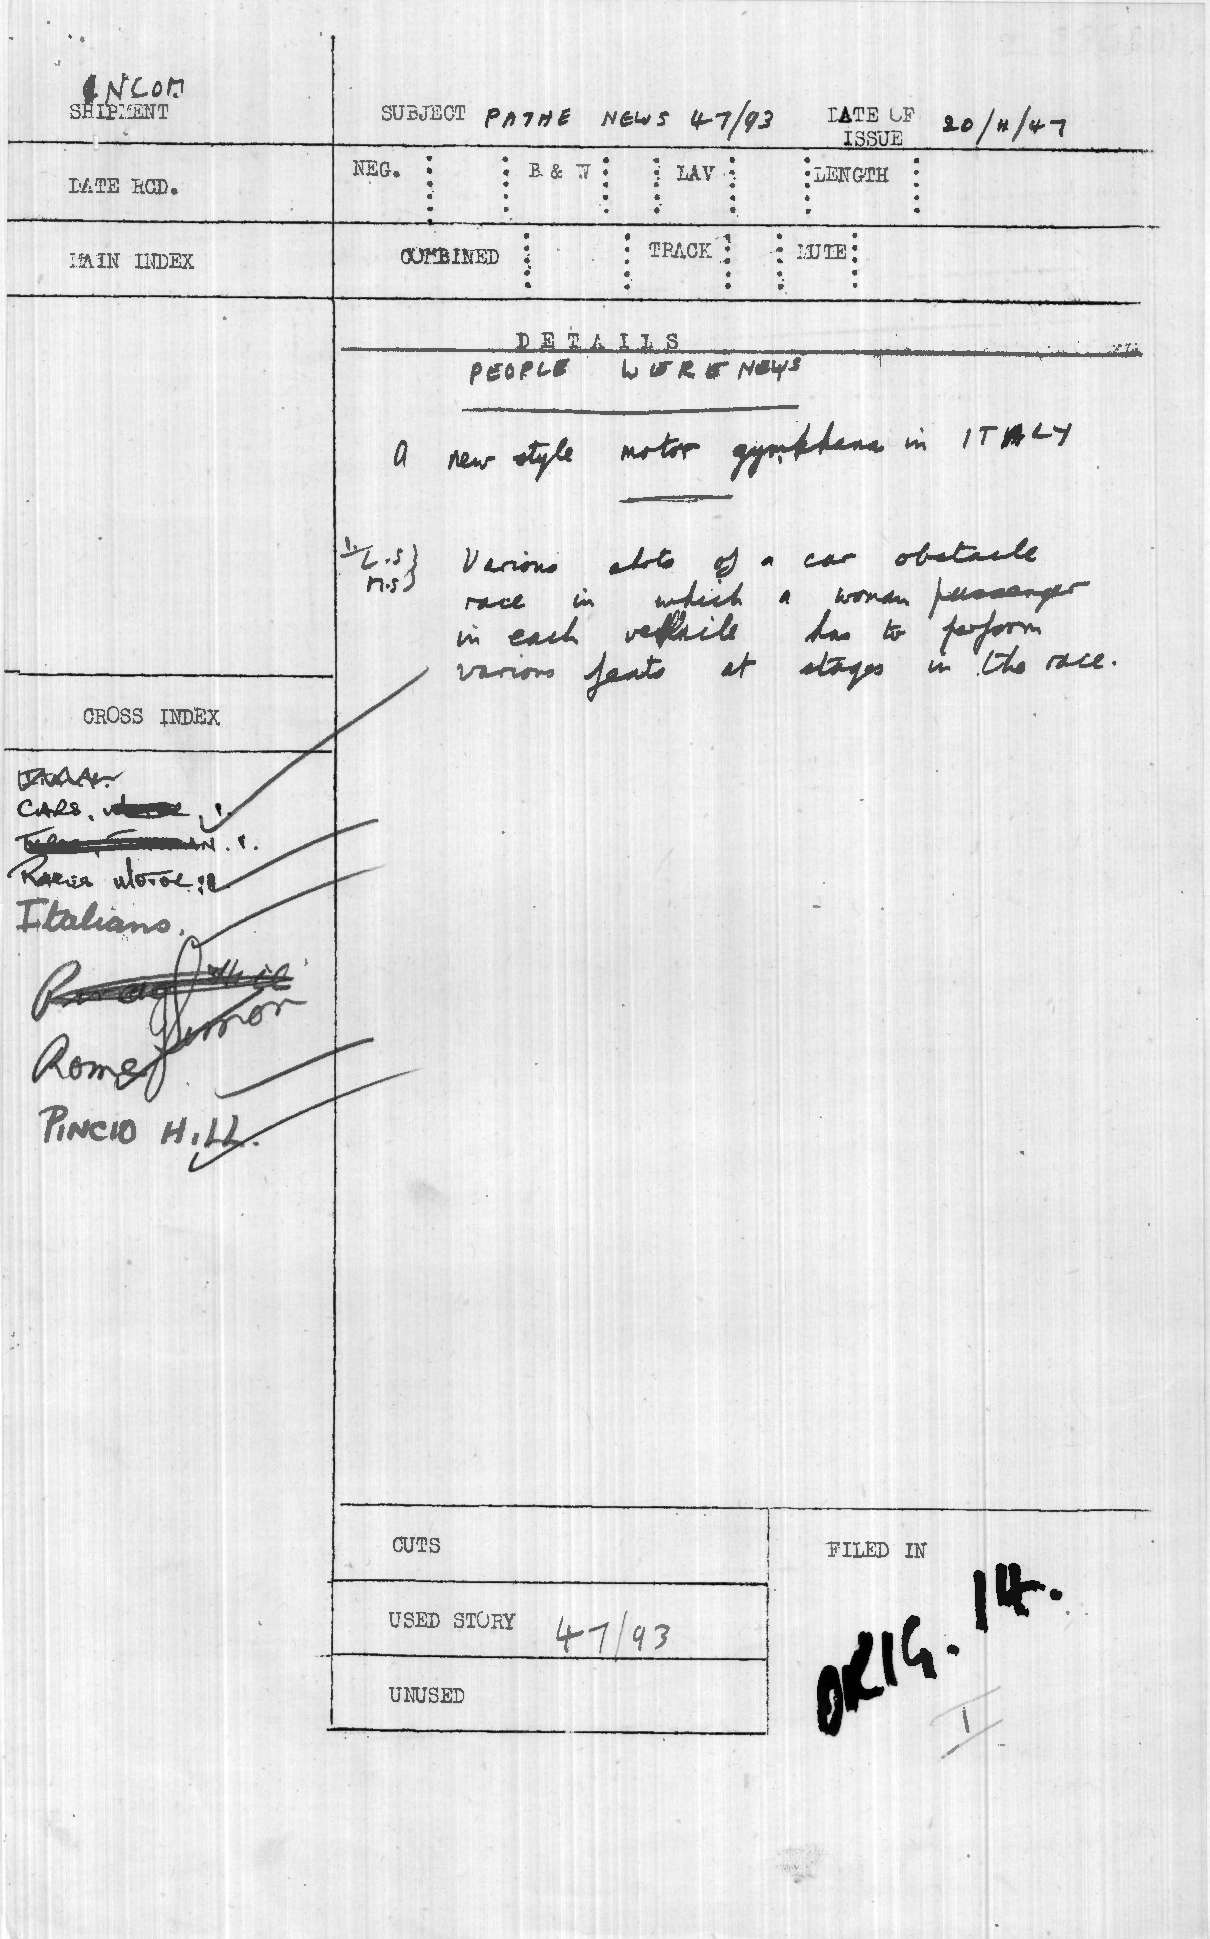 INCOM
SHIPMENT
SUBJECT PATHE NEWS 47/93
DATE OF ISSUE 20/11/47
DATE RCD.
NEG. B & W LAV LENGTH
MAIN INDEX
COMBINED TRACK MUTE
DETAILS
PEOPLE WERE NEWS
A new style motor gymkhana in ITALY
1. L.S
M.S
Various shots of a car obstacle
race in which a woman passenger
in each vehicle has to perform
various feats at stages in the race.
CROSS INDEX
CARS.
RACES MOTOR
Italians.
Rome
PINCIO HILL.
CUTS
USED STORY 47/93
UNUSED
FILED IN
ORIG. 14.
1